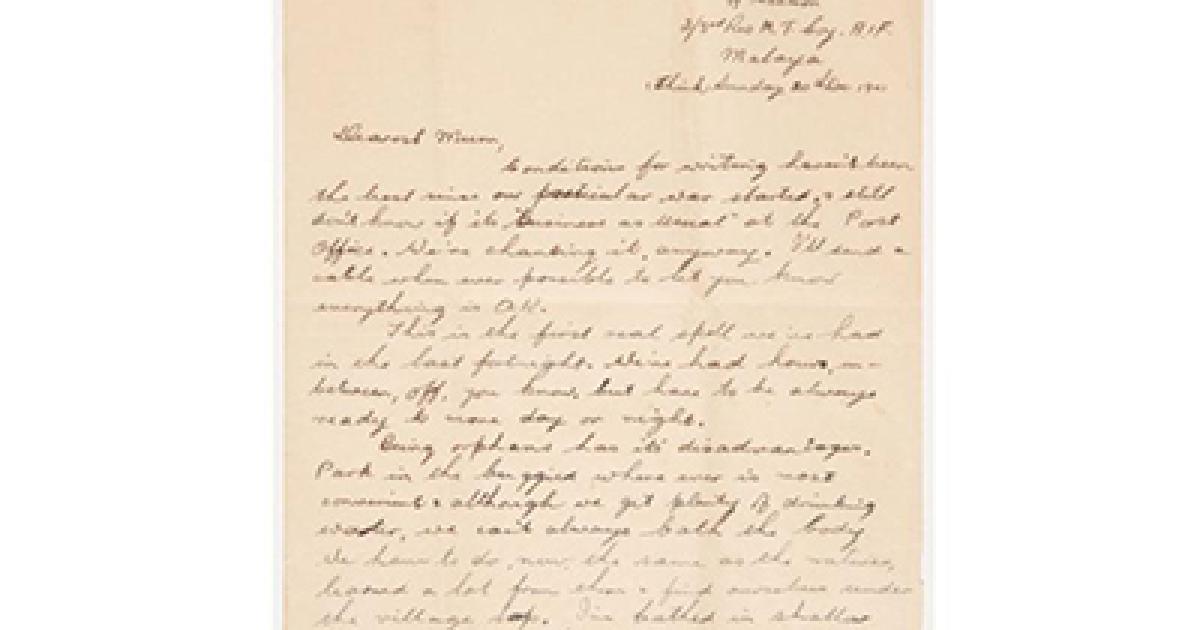 2/3rd Res M. T. Coy. A.I.F.
Malaya
Think, Sunday 20th Dec
Dearest Mum,
Conditions for writing haven't been
the best since our particular war started, & still
don't know if it's "business as usual" at the Post
Office. We're chancing it, anyway. I'll send a
cable when ever possible to let you know
everything is OK.
This is the first real spell we've had
in the last fortnight. We've had hours, in-
between, off, you know, but have to be always
ready to move day or night.
Being orphans has its disadvantages.
Park in the buggied where ever is most
convenient & although we get plenty of drinking
water, we can't always bath the body
We have to do, now, the same as the natives,
learned a lot from them & find ourselves under
the village tap. I've bathed in smaller